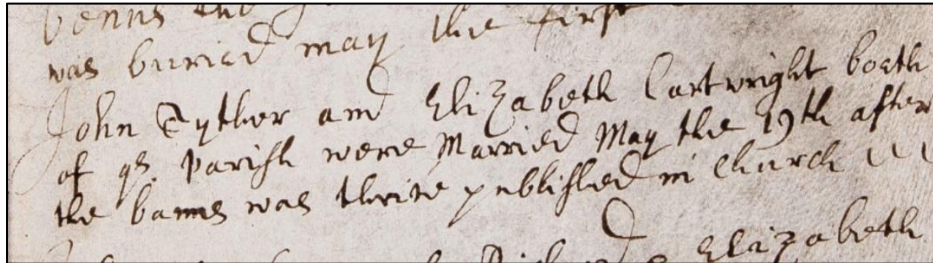 was buried may the first
John Syther and Elizabeth Cartwright boeth
of ys. parish were Married May the 19th after
the banns was thrice published in Church
Elizabeth